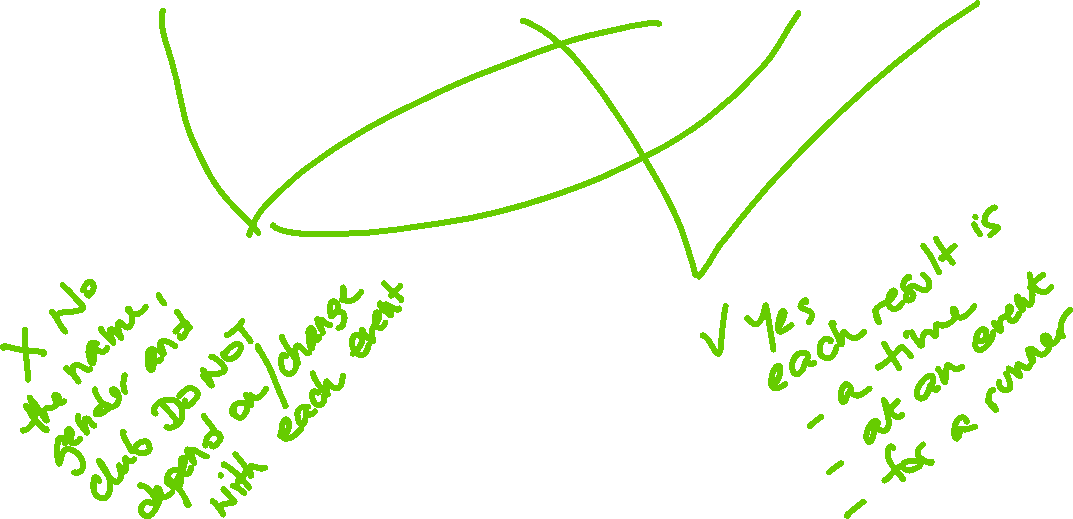 X No
the name,
gender and
club DO NOT
depend on/change
with each event
√ Yes
each result is
- a time
- at an event
- for a runner